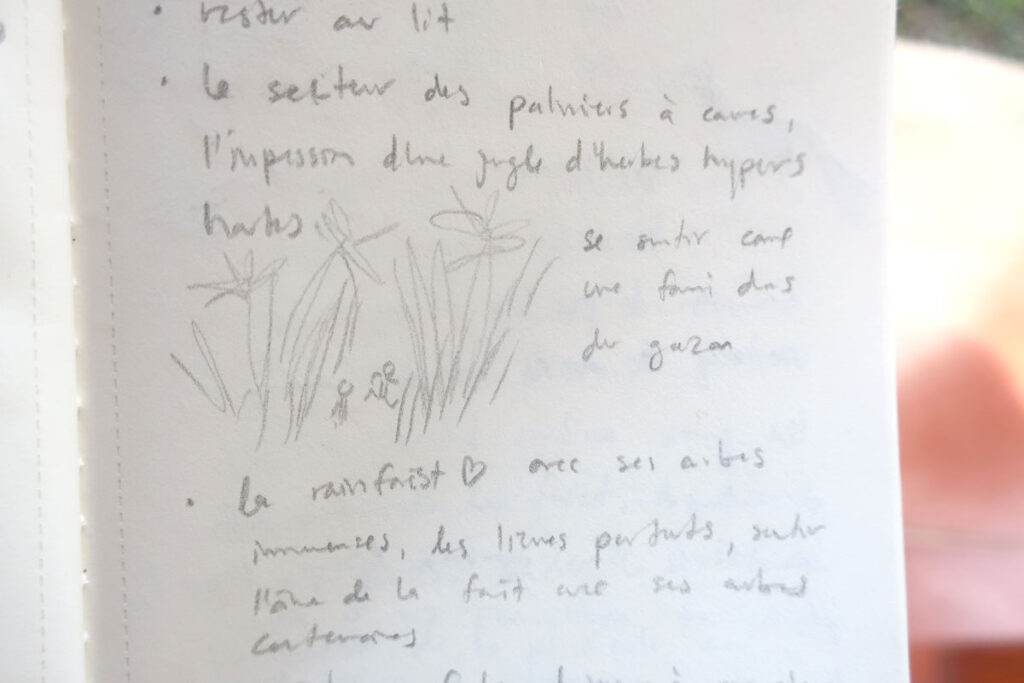 • rester au lit
• le secteur des palmiers à cannes,
l'impression d'une jungle d'herbes hypers
hautes.
se sentir comme
une fourmi dans
du gazon
• la rainforêst ♡ avec ses arbres
immenses, des lianes partouts, sentir
l'âme de la forêt avec ses arbres
centenaires